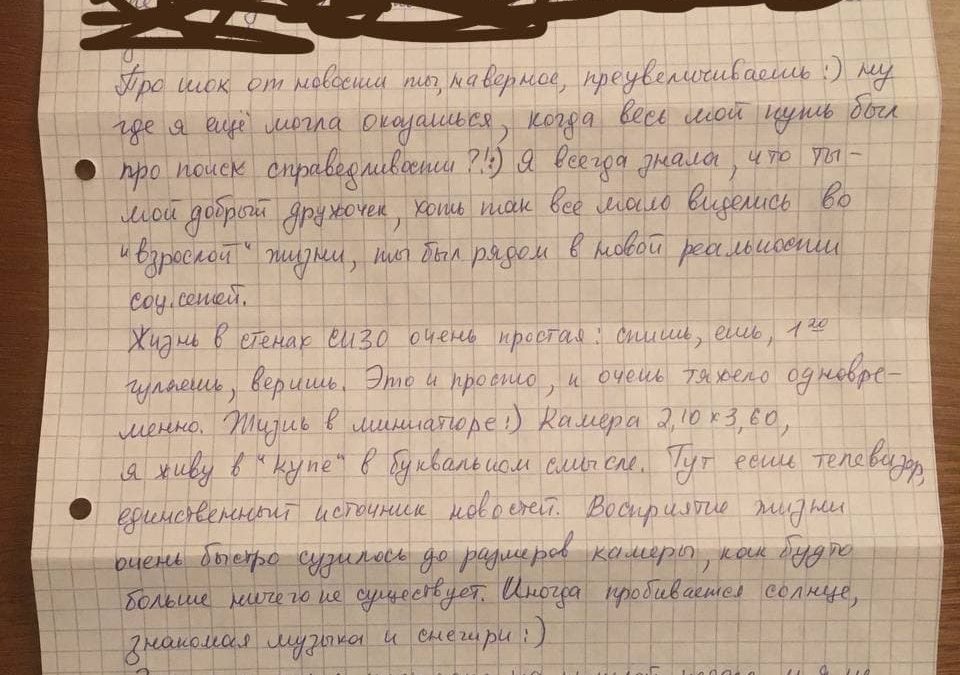 Про шок от новости ты, наверное, преувеличиваешь:) ну
где я ещё могла оказаться, когда весь мой путь был
про поиск справедливости?!:) Я всегда знала, что ты-
мой добрый дружочек, хоть так все мало виделись во
"взрослой" жизни, ты был рядом в новой реальности
соц.сетей.
Жизнь в стенах СИЗО очень простая: спишь, ешь, 1 20
гуляешь, веришь. Это и просто, и очень тяжело одновре-
менно. Жизнь в миниатюре:) Камера 2,10 х 3,60,
я живу в "купе" в буквальном смысле. Тут есть телевизор,
единственный источник новостей. Восприятие жизни
очень быстро сузилось до размеров камеры, как будто
больше ничего не существует. Иногда пробивается солнце,
знакомая музыка и снегири:)